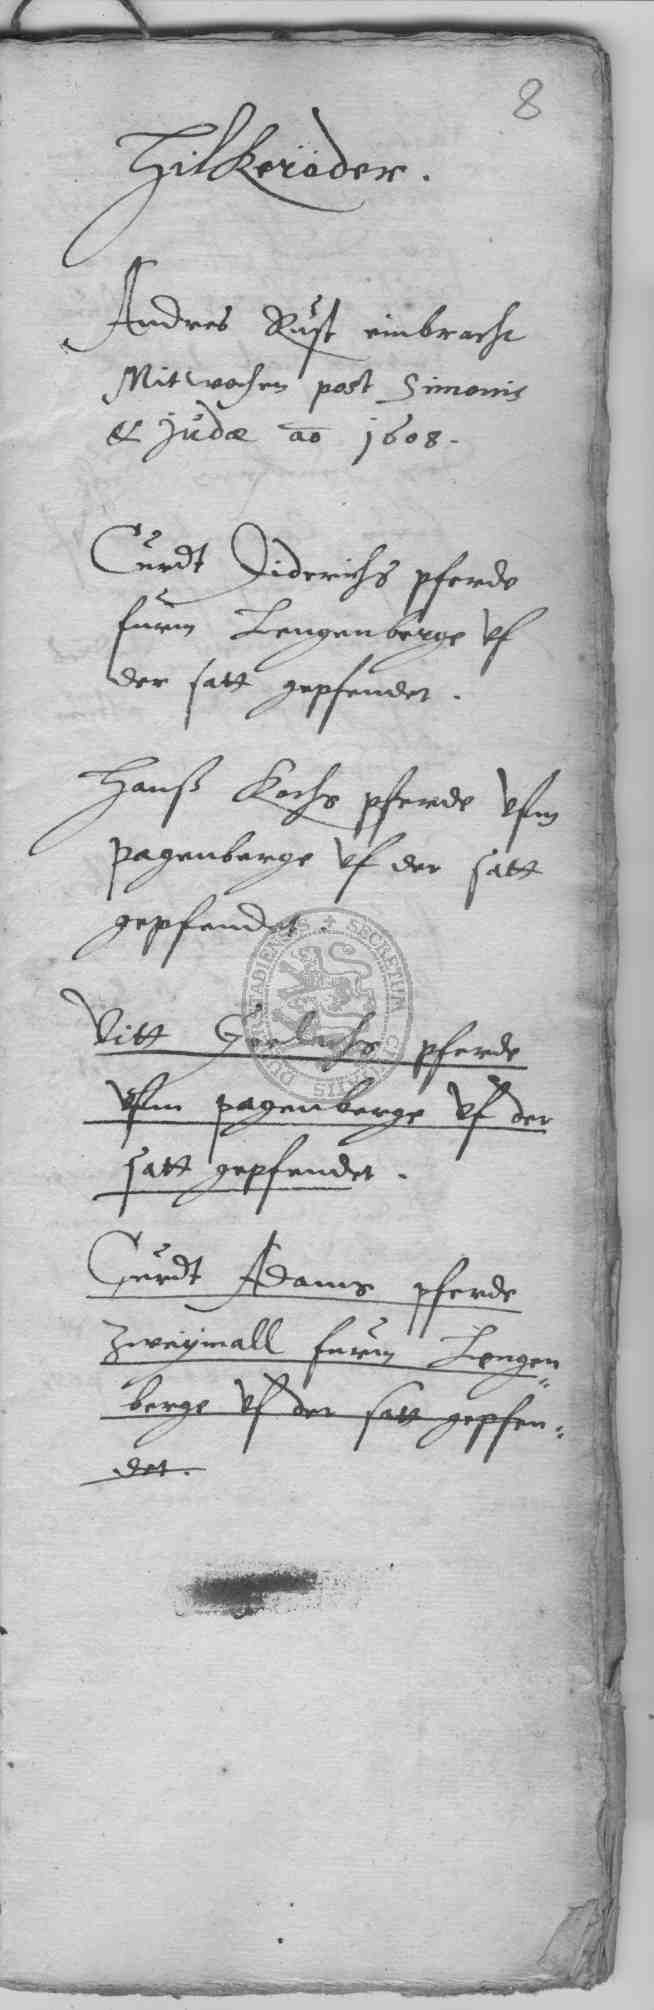 8
Hilkeröder.
Andres Rust einbracht
Mitwochen post Simonis
et Judæ ao 1608.
Curdt Diderichs pferde
furm Lengenberge vf
der satt gepfendet.
Hanß Kochs pferde vfm
pagenberge vf der satt
gepfendet.
Vitt Gerlachs pferde
vfm pagenberge vf der
satt gepfendet.
Curdt Adams pferde
zweymall furm Lengen„
berge vf der satt gepfen„
det.
SECRETUM CIVITATIS DUDERSTADIENSIS